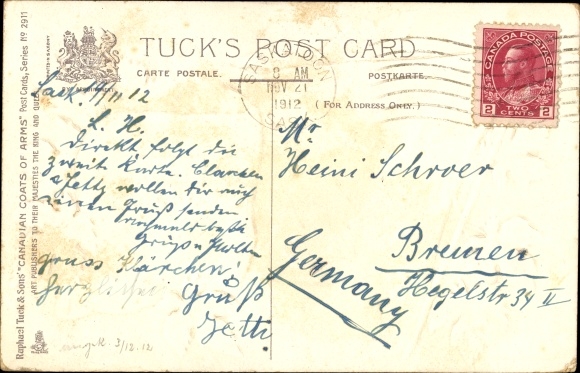 TUCK'S POST CARD
CARTE POSTALE.
POSTKARTE.
(FOR ADDRESS ONLY.)
8 AM
NOV 21
1912
CANADA POSTAGE
2 TWO CENTS 2
Raphael Tuck & Sons' "CANADIAN COATS OF ARMS" Post Cards, Series Nº 2911
ART PUBLISHERS TO THEIR MAJESTIES THE KING AND QUEEN
Sask. 11 12
L. H.
Direkt folgt die
zweite Karte. Clärchen
& Jetty wollen dir auch
einen Gruß senden
Grüße
gruss Klärchen!
Herzlichen
Gruß
Jetti
3/12.12
Mr
Heini Schroer
Bremen
Hegelstr 34 II
Germany